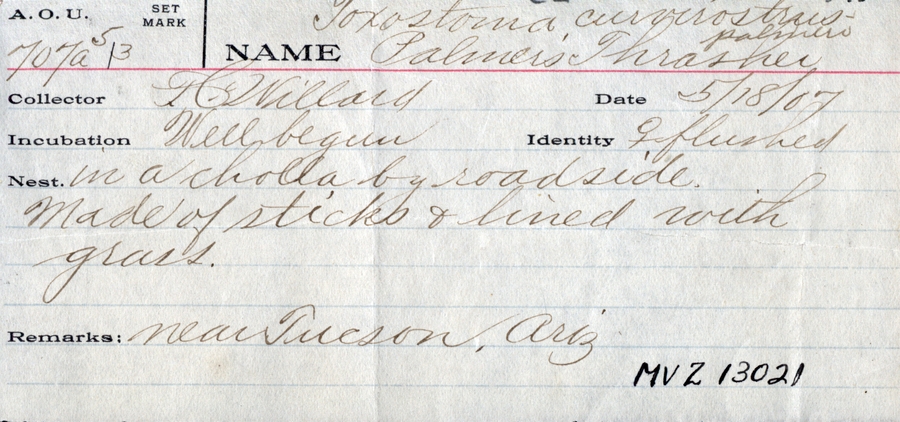 Toxostoma curvirostris
palmeri
A. O. U. SET MARK
707a 5/3 NAME Palmer's Thrasher
Collector F.C. Willard Date 5/18/07
Incubation Well begun Identity ♀ flushed
Nest. in a cholla by roadside.
Made of sticks & lined with
grass.
Remarks: near Tucson, Ariz
MVZ 13021